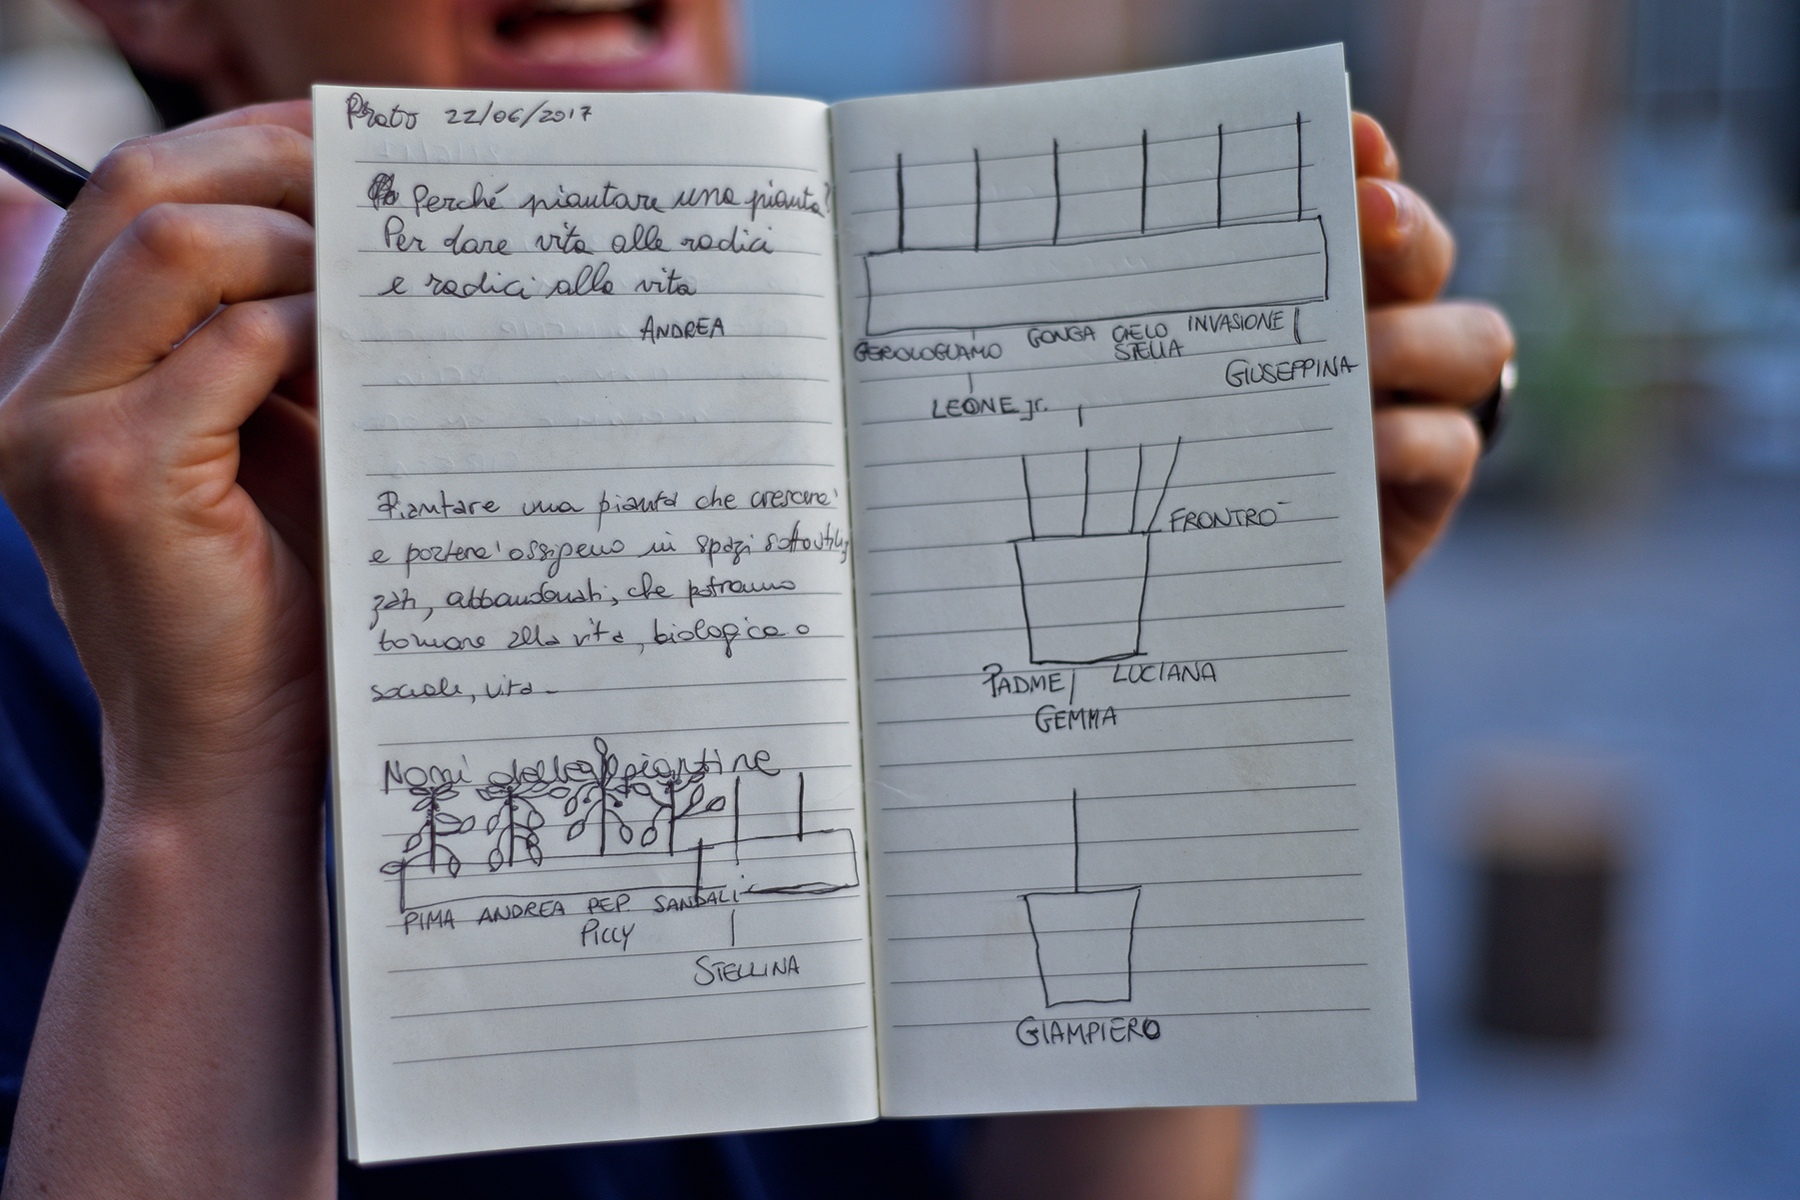 Prato 22/06/2017
Perché piantare una pianta?
Per dare vita alle radici
e radici alla vita
ANDREA
Piantare una pianta che crescerà
e porterà ossigeno in spazi sottoutiliz
zati, abbandonati, che potranno
tornare alla vita, biologica o
sociale, vita.
Nomi delle piantine
PIMA ANDREA PEP. SANDALI
PICCY
STELLINA
GONGA CIELO INVASIONE
STELLA
GIUSEPPINA
LEONE jr.
FRONTRO
PADME LUCIANA
GEMMA
GIAMPIERO